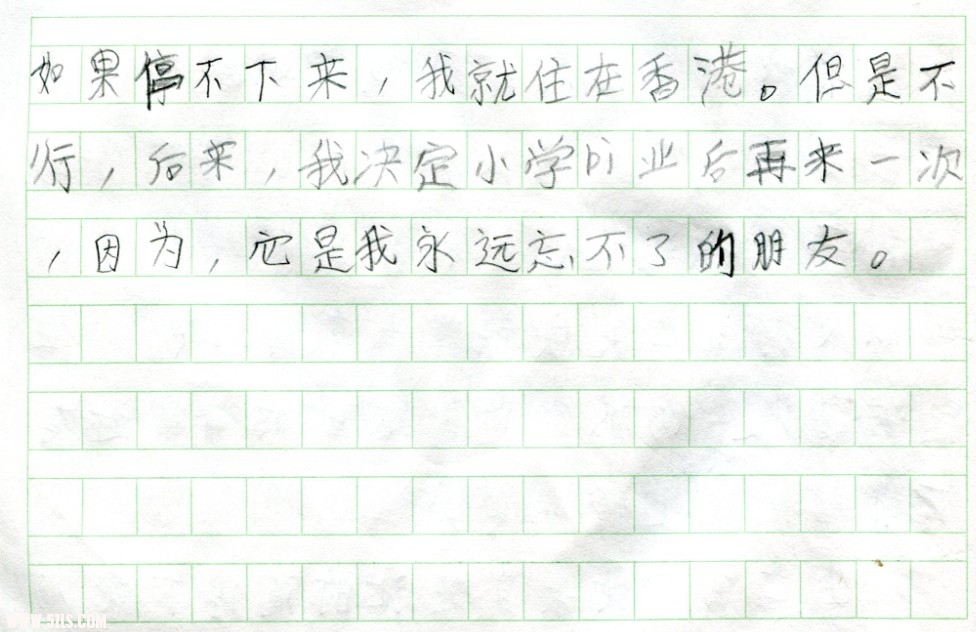 如果停不下来，我就住在香港。但是不
行，后来，我决定小学毕业后再来一次
，因为，它是我永远忘不了的朋友。